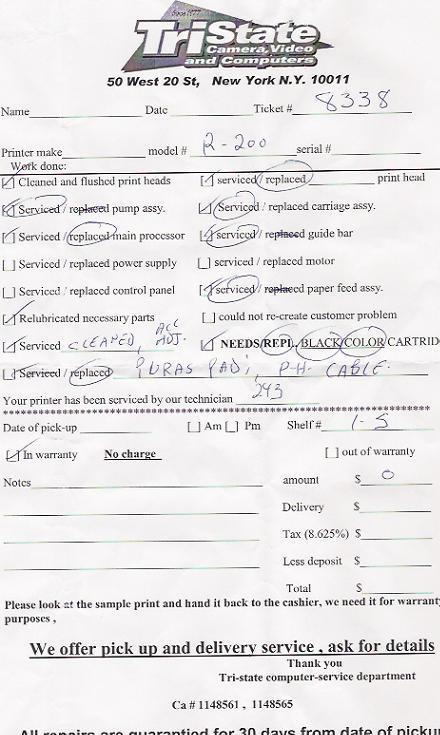 Since 1977
TriState
Camera, Video
and Computers
50 West 20 St, New York N.Y. 10011
Name Date Ticket # 8338
Printer make model # R-200 serial #
Work done:
Cleaned and flushed print heads [ ] serviced / replaced print head
Serviced / replaced pump assy. [ ] Serviced / replaced carriage assy.
Serviced / replaced main processor [ ] serviced / replaced guide bar
[ ] Serviced / replaced power supply [ ] serviced / replaced motor
[ ] Serviced / replaced control panel [ ] serviced / replaced paper feed assy.
Relubricated necessary parts [ ] could not re-create customer problem
Serviced CLEANED, ALL ADJ. NEEDS/REPL, BLACK/COLOR CARTRID
Serviced / replaced PADS, P-H. CABLE.
Your printer has been serviced by our technician 243
**************************************************
Date of pick-up [ ] Am [ ] Pm Shelf # 1-5
In warranty No charge [ ] out of warranty
Notes amount $ 0
Delivery $
Tax (8.625%) $
Less deposit $
Total $
Please look at the sample print and hand it back to the cashier, we need it for warranty
purposes ,
We offer pick up and delivery service , ask for details
Thank you
Tri-state computer-service department
Ca # 1148561 , 1148565
All repairs are guarantied for 30 days from date of pickup